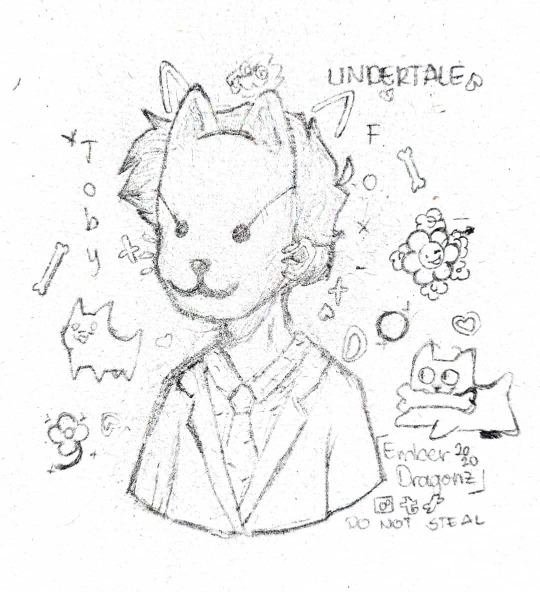 UNDERTALE
Toby
Fox
[Ember 2020
Dragonz]
DO NOT STEAL